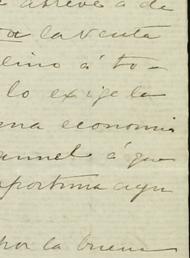 atreve á de
la venta
lino á to-
lo exige la
una economi
á que
oportuna ayu
por la buena